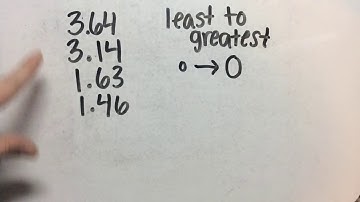 3.64
3.14
1.63
1.46
least to
greatest
o → O